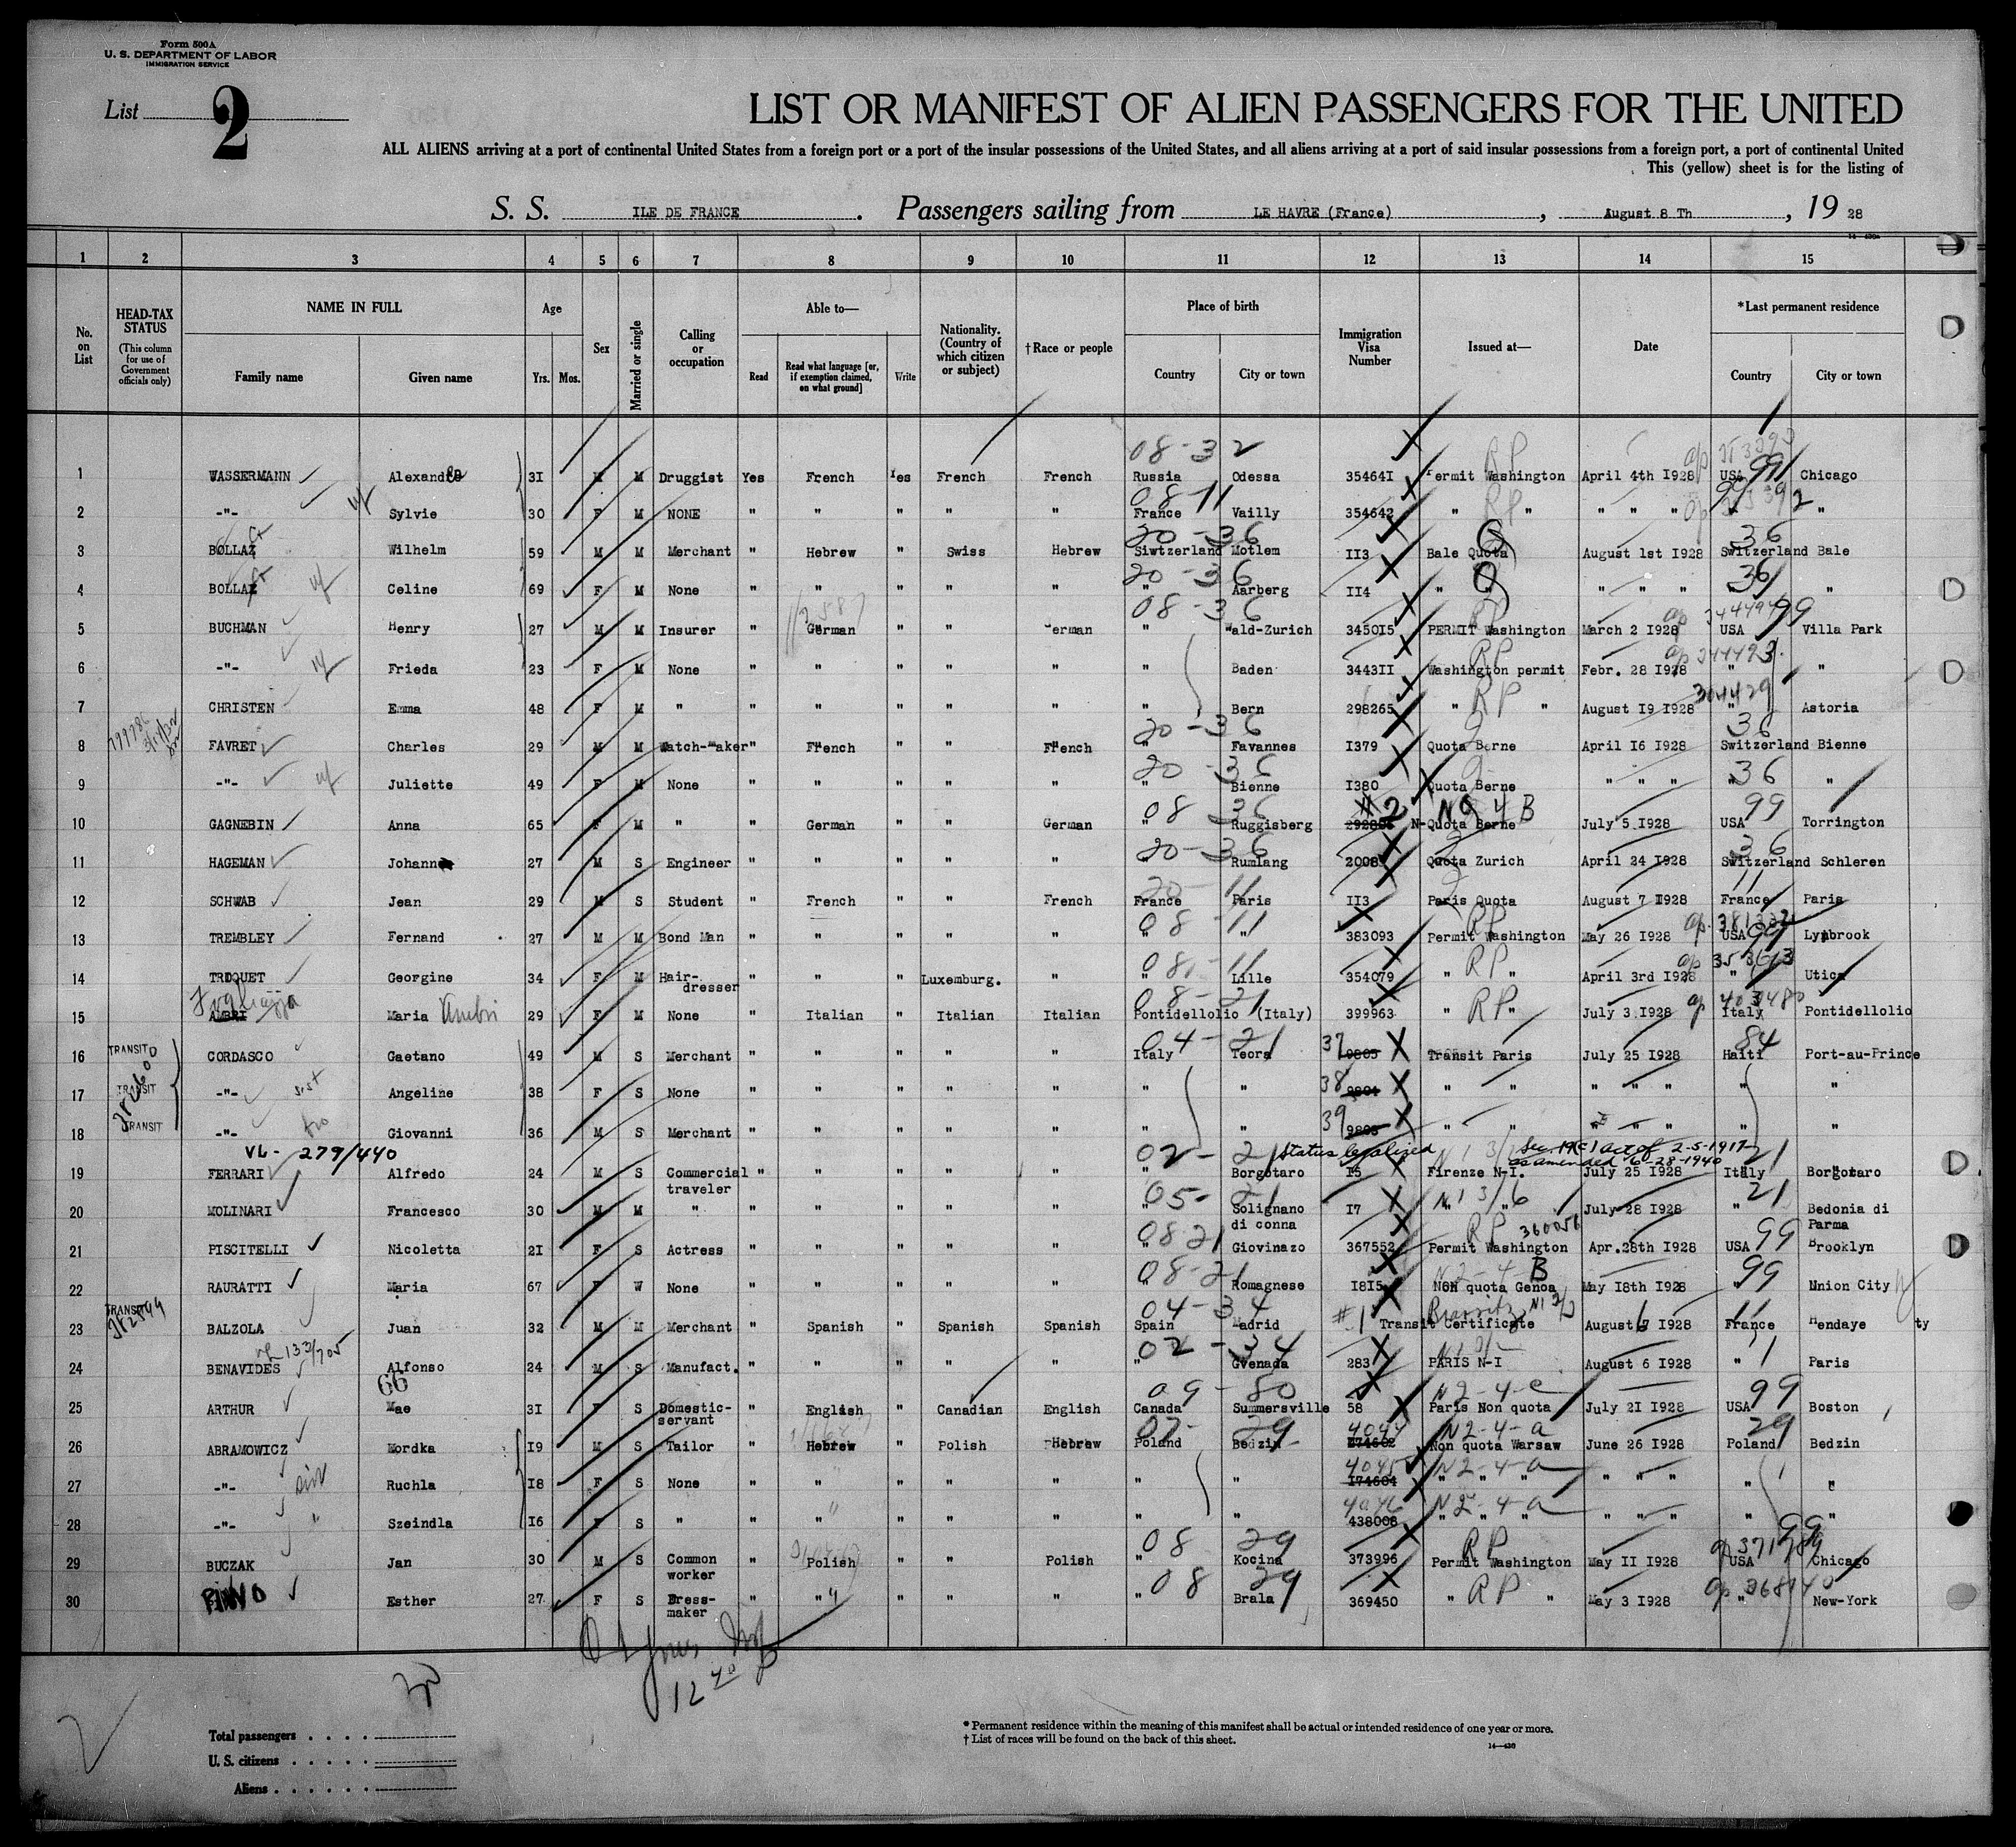 Form 500A
U. S. DEPARTMENT OF LABOR
IMMIGRATION SERVICE
List 2
LIST OR MANIFEST OF ALIEN PASSENGERS FOR THE UNITED
ALL ALIENS arriving at a port of continental United States from a foreign port or a port of the insular possessions of the United States, and all aliens arriving at a port of said insular possessions from a foreign port, a port of continental United
This (yellow) sheet is for the listing of
S. S. ILE DE FRANCE. Passengers sailing from LE HAVRE (France), August 8 Th, 19 28
1 2 3 4 5 6 7 8 9 10 11 12 13 14 15
No. on List HEAD-TAX STATUS (This column for use of Government officials only) NAME IN FULL Family name Given name Age Yrs. Mos. Sex Married or single Calling or occupation Able to— Read Read what language [or, if exemption claimed, on what ground] Write Nationality. (Country of which citizen or subject) †Race or people Place of birth Country City or town Immigration Visa Number Issued at— Date *Last permanent residence Country City or town
08-32
1 WASSERMANN Alexandre 31 M M Druggist Yes French Yes French French Russia Odessa 354641 Permit Washington RP April 4th 1928 USA 99 Chicago
08-11
2 -"- wf Sylvie 30 F M NONE " " " " " France Vailly 354642 " RP " " " " " "
20-36
3 BOLLAZ Wilhelm 59 M M Merchant " Hebrew " Swiss Hebrew Siwtzerland Motlem II3 Bale Quota August 1st 1928 36 Switzerland Bale
20-36
4 BOLLAZ wf Celine 69 F M None " " " " " " Aarberg II4 " " " " " 36 "
08-36
5 BUCHMAN Henry 27 M M Insurer " German " " German " Wald-Zurich 345015 PERMIT Washington RP March 2 1928 USA 99 Villa Park
6 -"- wf Frieda 23 F M None " " " " " " Baden 344311 Washington permit RP Febr. 28 1928 " "
7 CHRISTEN Emma 48 F M " " " " " " " Bern 298265 " RP " August 19 1928 304429 " Astoria
20-36
8 FAVRET Charles 29 M M Watch-maker " French " " French " Favannes 1379 Quota Berne April 16 1928 36 Switzerland Bienne
20-36
9 -"- wf Juliette 49 F M None " " " " " " Bienne 1380 Quota Berne " " " 36 " "
08 36
10 GAGNEBIN Anna 65 F M " " German " " German " Ruggisberg #2 N-Quota Berne July 5 1928 USA 99 Torrington
20-36
11 HAGEMAN Johann 27 M S Engineer " " " " " " Rumlang 2008 Quota Zurich April 24 1928 36 Switzerland Schleren
20-11
12 SCHWAB Jean 29 M S Student " French " " French France Paris II3 Paris Quota August 7 1928 11 France Paris
08-11
13 TREMBLEY Fernand 27 M M Bond Man " " " " " " " 383093 Permit Washington RP May 26 1928 USA 99 Lynbrook
08-11
14 TRIQUET Georgine 34 F M Hair-dresser " " " Luxemburg. " " Lille 354079 " RP " April 3rd 1928 " Utica
08-21
15 AMBRI Maria Ambri 29 F M None " Italian " Italian Italian Pontidellolio (Italy) 399963 " RP " July 3 1928 Italy Pontidellolio
04-21
16 TRANSIT CORDASCO Gaetano 49 M S Merchant " " " " " Italy Teora 37 9803 Transit Paris July 25 1928 84 Haiti Port-au-Prince
17 TRANSIT -"- sist Angeline 38 F S None " " " " " " " 38 9804 " " " " " " "
18 TRANSIT -"- bro Giovanni 36 M S Merchant " " " " " " " 39 9805 " " " " " " "
VL- 279/440 02-21 Status legalized Sec. 19(c) act of 2-5-1917 as amended 6-28-1940
19 FERRARI Alfredo 24 M S Commercial traveler " " " " " " Borgotaro 15 Firenze N-I. July 25 1928 21 Italy Borgotaro
05-21
20 MOLINARI Francesco 30 M M " " " " " " " Solignano di conna 17 N 1 3/6 July 28 1928 21 " Bedonia di Parma
08-21
21 PISCITELLI Nicoletta 21 F S Actress " " " " " " Giovinazo 367552 Permit Washington RP 360056 Apr.28th 1928 USA 99 Brooklyn
08-21
22 RAURATTI Maria 67 F W None " " " " " " Romagnese 1815 NON quota Genoa N2-4-B May 18th 1928 " 99 Union City
04-34
23 TRANSIT BALZOLA Juan 32 M M Merchant " Spanish " Spanish Spanish Spain Madrid #1 Transit Certificate Biarritz August 6 1928 11 France Hendaye ty
02-34
24 BENAVIDES Alfonso 24 M S Manufact. " " " " " " Gvenada 283 PARIS N-I August 6 1928 " Paris
66 09-80
25 ARTHUR Mae 31 F S Domestic-servant " English " Canadian English Canada Summersville 58 Paris Non quota N2-4-e July 21 1928 USA 99 Boston
07-29
26 ABRAMOWICZ Mordka 19 M S Tailor " Hebrew " Polish Hebrew Poland Bedzin 4044 Non quota Warsaw N2-4-a June 26 1928 29 Poland Bedzin
27 -"- Ruchla 18 F S None " " " " " " " 4045 174604 N2-4-a " " " " "
28 -"- " Szeindla 16 F S " " " " " " " " 4046 438008 N2-4-a " " " " "
08 29
29 BUCZAK Jan 30 M S Common worker " Polish " " Polish " Kocina 373996 Permit Washington RP May 11 1928 USA 99 Chicago
08 29
30 Esther 27 F S Dress-maker " " " " " " Brala 369450 " RP " May 3 1928 " New-York
Total passengers
U. S. citizens
Aliens
* Permanent residence within the meaning of this manifest shall be actual or intended residence of one year or more.
† List of races will be found on the back of this sheet.
14—430